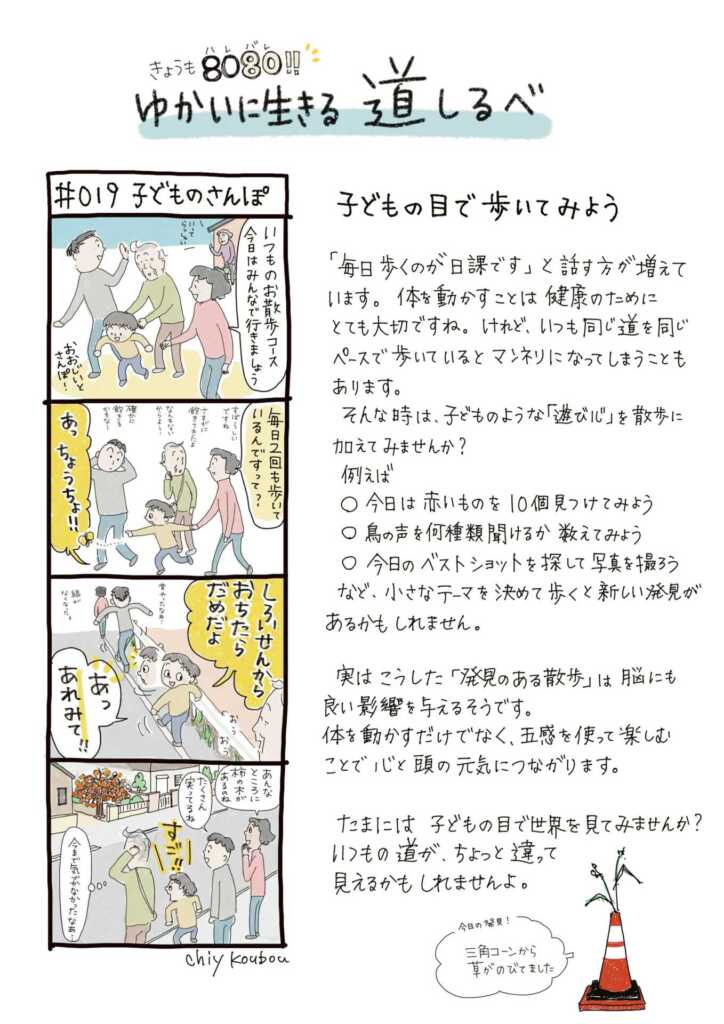 きょうも8080!!
ハレ バレ
ゆかいに生きる 道しるべ
#019 子どものさんぽ
いつものお散歩コース
今日はみんなで行きましょう
いって
らっしゃい
おおじいと
さんぽ!
毎日2回も歩いて
いるんですって?
すばらしい
ですね
さすがに
飽きてきたよ
ならない
からよー!
確かに
飽きる
かもなー
あっ
ちょうちょ!!
しろいせんから
おちたら
だめだよ
昔やったなあ!
線が
なくなった。
おう
おう
あっ
あれみて!!
あんな
ところに
柿の木が
あるのね
たくさん
実ってるね
すご!!
今まで気づかなかったなぁ!
chiy koubou
子どもの目で歩いてみよう
「毎日歩くのが日課です」と話す方が増えて
います。体を動かすことは健康のために
とても大切ですね。けれど、いつも同じ道を同じ
ペースで歩いているとマンネリになってしまうことも
あります。
そんな時は、子どものような「遊び心」を散歩に
加えてみませんか?
例えば
○ 今日は赤いものを10個見つけてみよう
○ 鳥の声を何種類聞けるか数えてみよう
○ 今日のベストショットを探して写真を撮ろう
など、小さなテーマを決めて歩くと新しい発見が
あるかもしれません。
実はこうした「発見のある散歩」は脳にも
良い影響を与えるそうです。
体を動かすだけでなく、五感を使って楽しむ
ことで心と頭の元気につながります。
たまには子どもの目で世界を見てみませんか?
いつもの道が、ちょっと違って
見えるかもしれませんよ。
今日の発見!
三角コーンから
草がのびてました